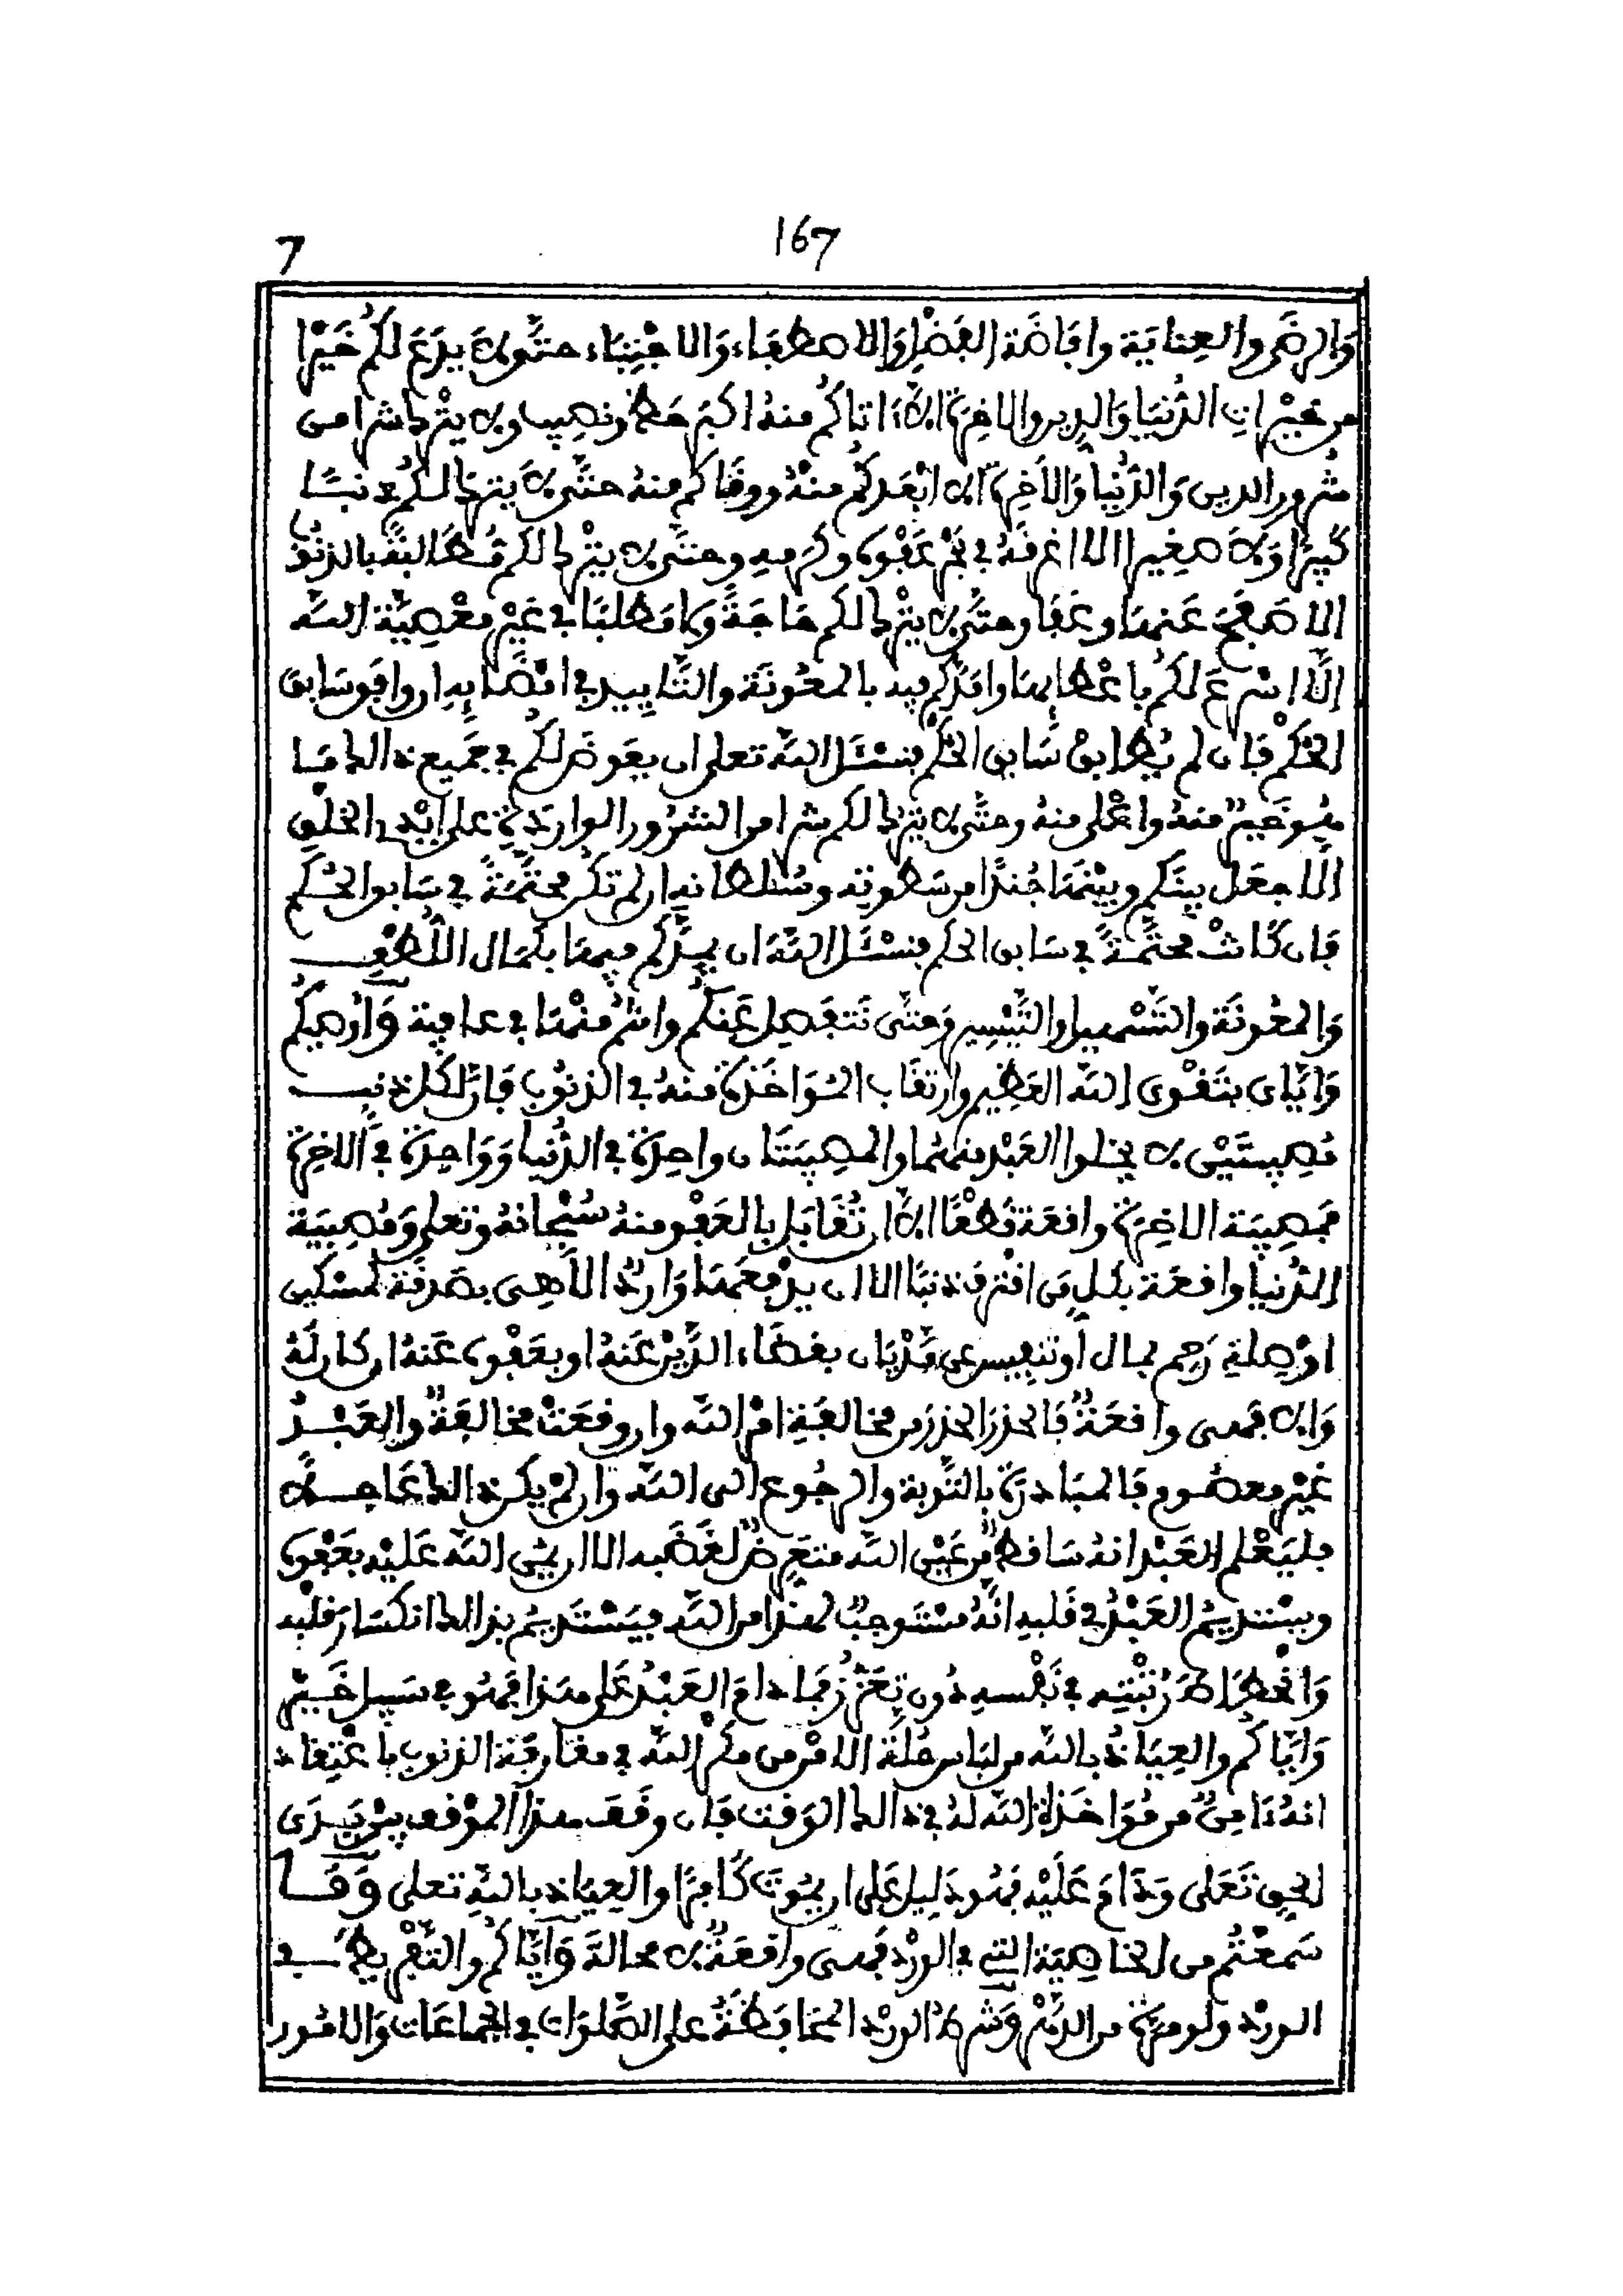 7
167
وَالرضَى والعِنايَة وافَاضَة الفَضْلِ وَالاصطِفَاء وَالاجْتِبَاء حتَّى لاَ يدَعَ لكُم خَيْرا
من خيْراتِ الدُّنيَا وَالدِين والاخِرَة الاَّ ءَاتاكُم منهُ اكبَر حَظ ونصِيب ولا يتْرك شرا من
شُرور الدين وَالدُّنْيا وَالأخِرَة الا ابْعَدكُم منْهُ ووقَاكُم منهُ حتَّى لاَ يترك لكُم ذنبًا
كَبيرًا وَلاَ صغِيرا الا اغرقَهُ في بَحْر عَفْوه وكرَمِهِ وحتَّى لا يتْرك لكم مُطَالبَةً بالذنُوب
الا صَفَحَ عَنهَا وعَفَا وحتَّى لا يتْرك لكم حَاجَةً وَلا مَطلبًا في غَيْر معْصِيَّة الله
الَّا اسْرعَ لكُم باعْطائِهَا وامَدَّكم فيه بالمعُونَة والتَّايِيد في امْضَائِهِ ان وافَق سَابِق
الحُكْم فان لم يُطابِقْ سَابِق الحُكْم فنسْئَل اللَّه تعلى ان يعَوضَ لكُم في جَميع ذالك مَا
هُو خَيرٌ منهُ واعْلى منهُ وحتَّى لا يترك لكم شرا من الشرُور الوارِدَةِ على ايْدِى الخَلْقِ
الَّا جعَل بينَكم وبيْنهَا جُندًا من سَطوتِه وسُلطانه ان لم تكُن محتَّمَةً في سَابِق الحُكم
فان كَانتْ محتَّمَةً في سَابق الحكم فنسْئَل اللَّهَ ان يمِدَّكم فيهَا بكمَال اللُّطْفِ
وَالمعُونَة والتَّسْهيل والتَّيْسِير وَحتَّى تَنفَصِل عَنكُم وانتُم منْهَا في عافية وَأُوصِيكُم
وَايَّاى بتَقْوى اللَّه العَظِيم وارتقَاب المُوَاخَذَة منهُ في الذنُوب فَانَّ لكل ذنبٍ
مُصِيبتَيْن لا يخلوا العَبْد منهُما والمصِيبتَان واحِدَة في الدُّنيا وَوَاحِدَة في الاخِرَة
فمصِيبَة الاخِرَة واقعَة قطْعًا الاَّ ان تُقَابَل بالعَفْو منهُ سُبْحانهُ وتعلى وَمُصِيبَة
الدُّنيا واقعَة بكل من اقْترفَ ذنبًا الا ان يدْفعَهَا وَاردٌ الاهِى بصَدقَة لمسْكين
اوْ صِلةِ رَحِم بمال أو تنفِيس عن مَدْيَان بقضَاء الدَّيْن عَنهُ او بعَفْوه عَنهُ ان كان لَهُ
وَالا فهى واقعَةٌ فَالحذَر الحذَر من مخالفَةِ امْر اللَّه وان وقعَتْ مخالفَةٌ والعَبْدُ
غيْر معصُوم فَالمبَادرَة بالتَّوبة والرجُوع الى اللَّه وان لم يكن ذالك عَاجلاً
فليَعْلم العَبْد انهُ سَاقطٌ من عَيْن اللَّه متعَرضٌ لغَضَبه الا ان يمُنَّ اللَّه عَليْه بعَفْوه
ويسْتديمُ العَبْدُ في قَلبِه انَّهُ مسْتَوجبٌ لهذا من اللَّه فيَسْتديمُ بذالك انكسَارَ قلْبِه
وَانْحِطَاطَ رُتْبَتِه في نَفْسِه دُون تعَزُّز فمَا دامَ العَبْدُ عَلى هذا فهُو في سَبِيل خَيْر
وَايَّاكُم والعِيَاذُ باللَّه من لبَاس حُلَّة الامْن من مكْر اللَّه في مقارفَة الذنوب باعْتِقَاد
انهُ ءَامِنٌ من مُؤَاخَذَة اللَّه لهُ في ذالك الوَقت فَان وقَفَ هذا الموْقف بيْن يَدَى
الحق تَعَلى وَدَامَ عَلَيْه فهُو دَلِيل عَلى ان يمُوتَ كَافِرًا والعِيَاذ باللَّهِ تعلى وَمَا
سَمعْتُم من الخاصِيَّة التي في الورْد فَهى واقعَةٌ لا محالةَ وَايَّاكُم والتَّفْريطَ في
الورْد ولو مرَّة من الدَّهْر وَشرطُ الورْد المحَافظَةُ على الصَّلوَات في الجماعَات وَالامُور